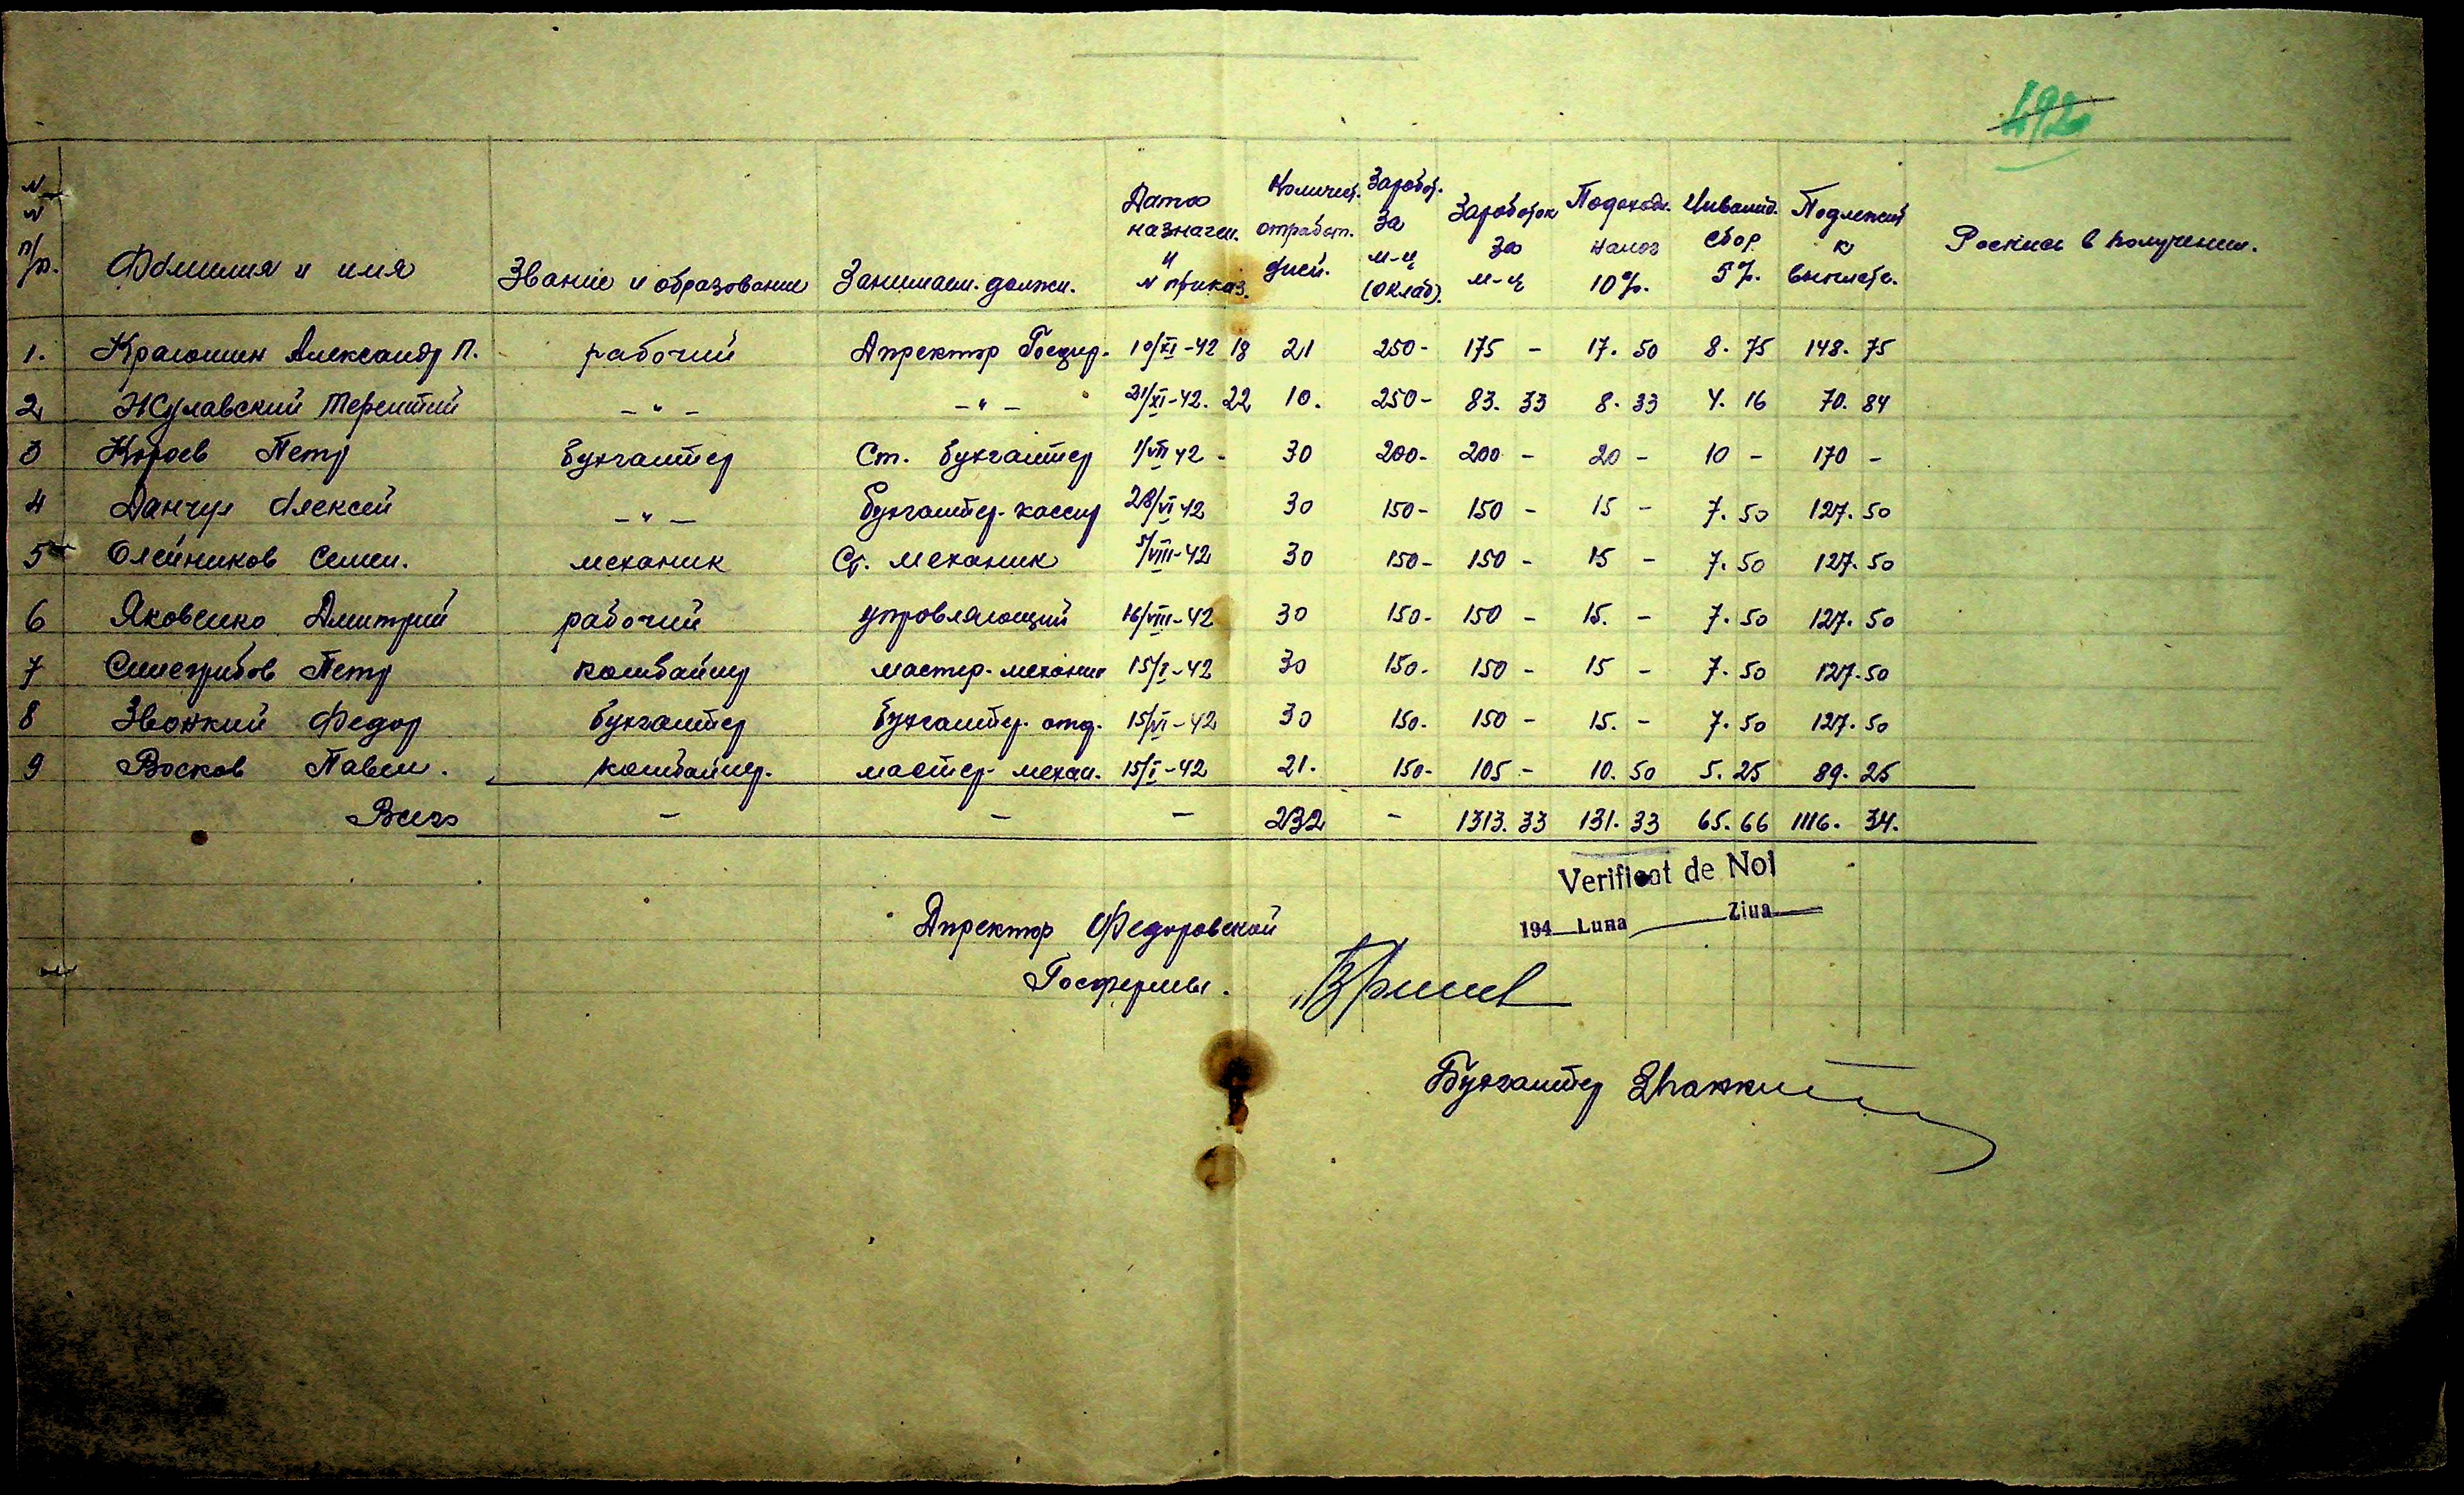 492
№ № п/п. Фамилия и имя Звание и образование Занимаем. должн. Дата назначен. и № приказ. Количест. отработ. дней. Заработ. за м-ц (оклад). Заработок за м-ц Подоходн. налог 10%. Инвалид. сбор 5%. Подлежит к выплате. Роспись в получении.
1. Александр П. рабочий Директор Госфер. 10/XI-42 18 21 250- 175 - 17. 50 8. 75 148. 75
2. Жулавский Терентий -"- -"- 21/XI-42. 22 10. 250- 83. 33 8. 33 4. 16 70. 84
3 Петр бухгалтер Ст. бухгалтер 1/VII 42 - 30 200- 200 - 20 - 10 - 170 -
4 Данчул Алексей -"- бухгалтер-кассир 28/VI 42 30 150- 150 - 15 - 7. 50 127. 50
5 Олейников Семен. механик Ст. механик 5/VIII-42 30 150- 150 - 15 - 7. 50 127. 50
6 Яковенко Дмитрий рабочий управляющий 16/VIII-42 30 150- 150 - 15. - 7. 50 127. 50
7 Синегрибов Петр комбайнер мастер-механик 15/I-42 30 150. 150 - 15 - 7. 50 127. 50
8 Звонкий Федор бухгалтер бухгалтер отд. 15/VI-42 30 150. 150 - 15. - 7. 50 127. 50
9 Восков Павел. комбайнер. мастер-механ. 15/I-42 21. 150- 105 - 10. 50 5. 25 89. 25
Всего - - - 232 - 1313. 33 131. 33 65. 66 1116. 34.
Verificat de Noi
194 Luna Ziua
Директор Федоровской
Госфермы.
Бухгалтер Звонкий